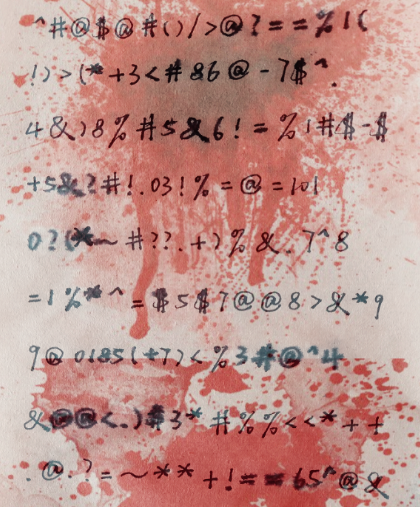 ^#@$@#()/>@?==%1(
!)>(*+3<#86@-7$^.
4&)8%#5&6!=%1#$-$
+5&?#!.03!%=@=101
0?(*~#??.+)%&.7^8
=1%*^=$5$7@@8>&*9
9@0185(+7)<%3#@^4
&@@<.)#3*#%%<<*++
.@.?=~**+!==65^@&